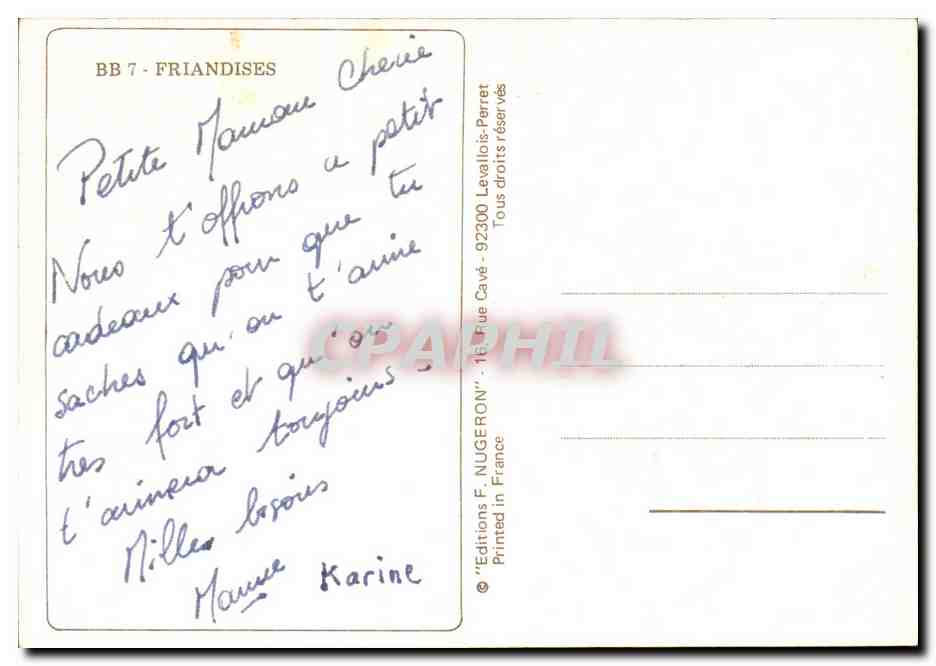 BB 7 - FRIANDISES
Petite Maman Cherie
Nous t'offrons a petit
cadeaux pour que tu
saches qu'on t'aime
tres fort et qu'on
t'aimera toujours -
Milles bisous
Karine
© "Editions F. NUGERON" - 16, Rue Cavé - 92300 Levallois-Perret
Printed in France
Tous droits réservés
CPAPHIL